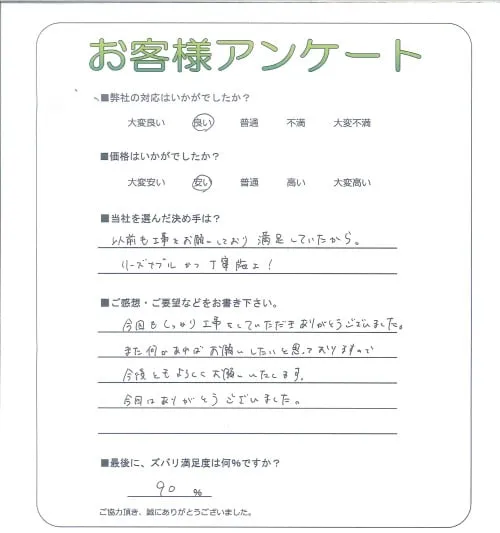 お客様アンケート
■弊社の対応はいかがでしたか?
大変良い 良い 普通 不満 大変不満
■価格はいかがでしたか?
大変安い 安い 普通 高い 大変高い
■当社を選んだ決め手は?
以前も工事をお願いしており 満足していたから。
リーズナブル かつ 丁寧
■ご感想・ご要望などをお書き下さい。
今回もしっかり工事をしていただきありがとうございました。
また何かあれば お願いしたいと思っておりますので
今後ともよろしくお願いいたします。
今回はありがとうございました。
■最後に、ズバリ満足度は何%ですか?
90 %
ご協力頂き、誠にありがとうございました。